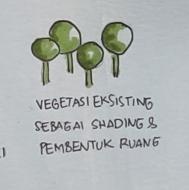 VEGETASI EKSISTING
SEBAGAI SHADING &
PEMBENTUK RUANG